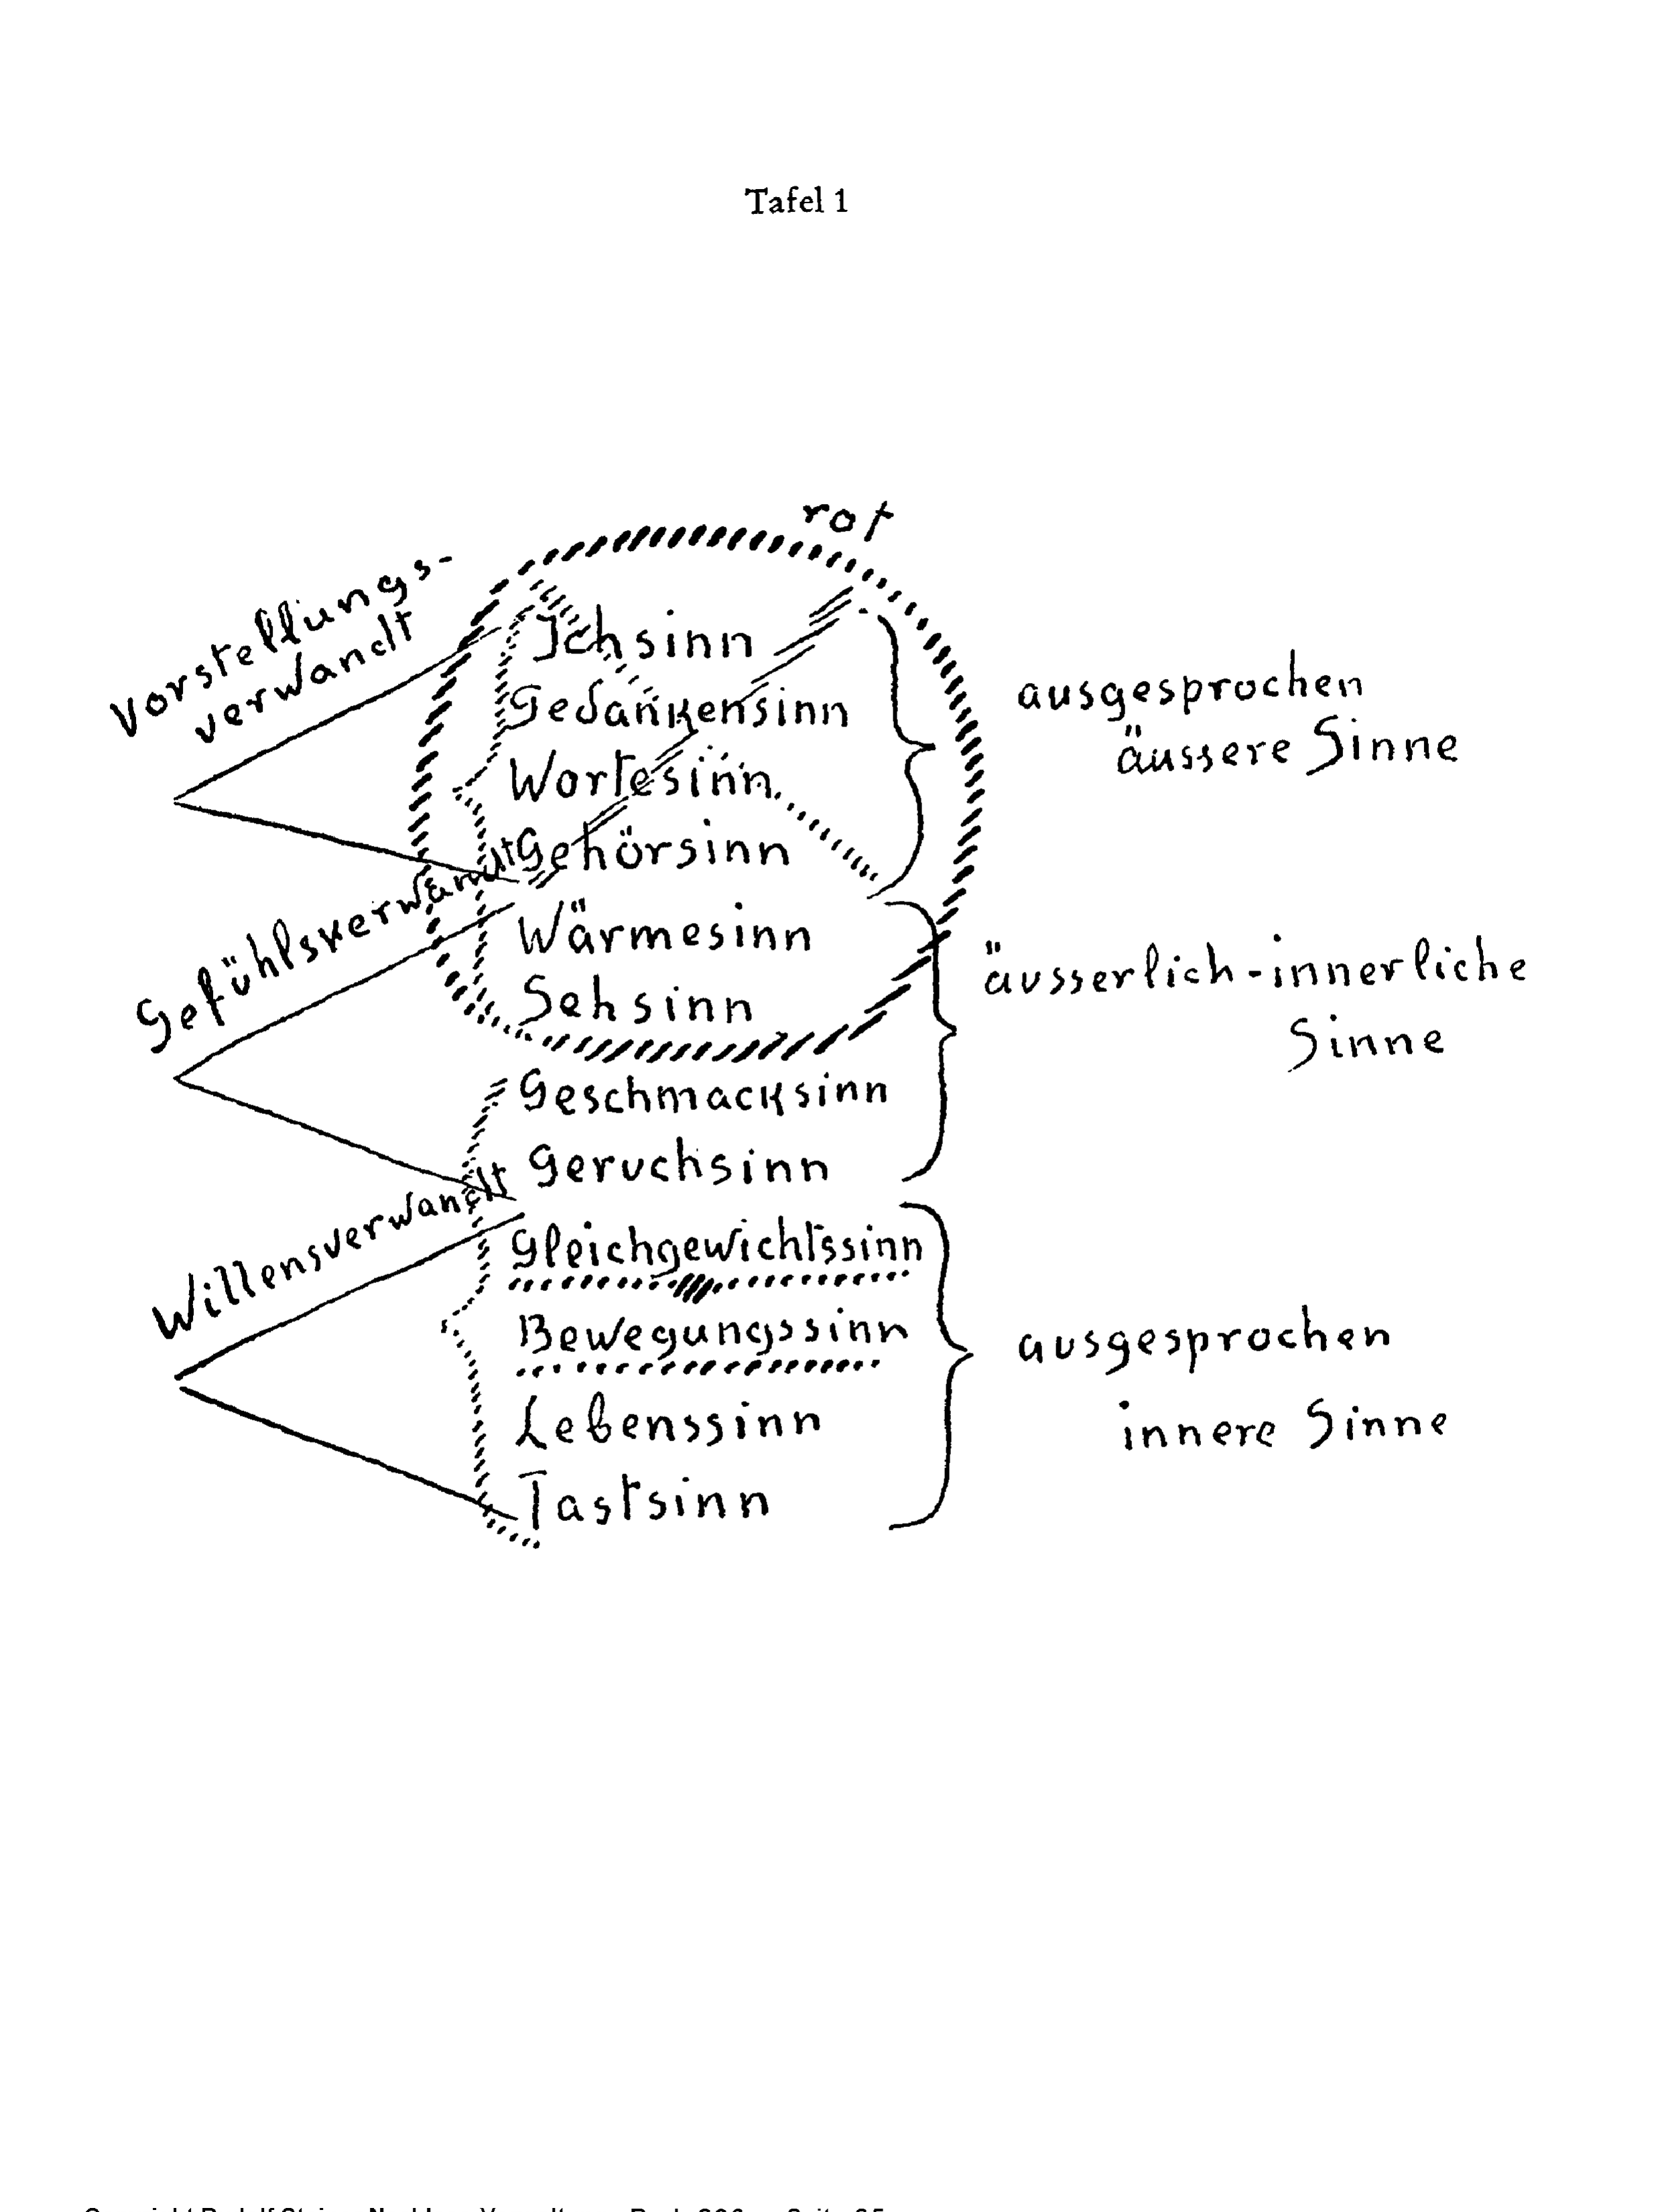 Tafel 1
rot
Vorstellungs-
verwandt
Ichsinn
Gedankensinn
Wortesinn
Gehörsinn
ausgesprochen
äussere Sinne
Gefühlsverwandt
Wärmesinn
Sehsinn
Geschmacksinn
Geruchsinn
äusserlich-innerliche
Sinne
Willensverwandt
Gleichgewichtssinn
Bewegungssinn
Lebenssinn
Tastsinn
ausgesprochen
innere Sinne